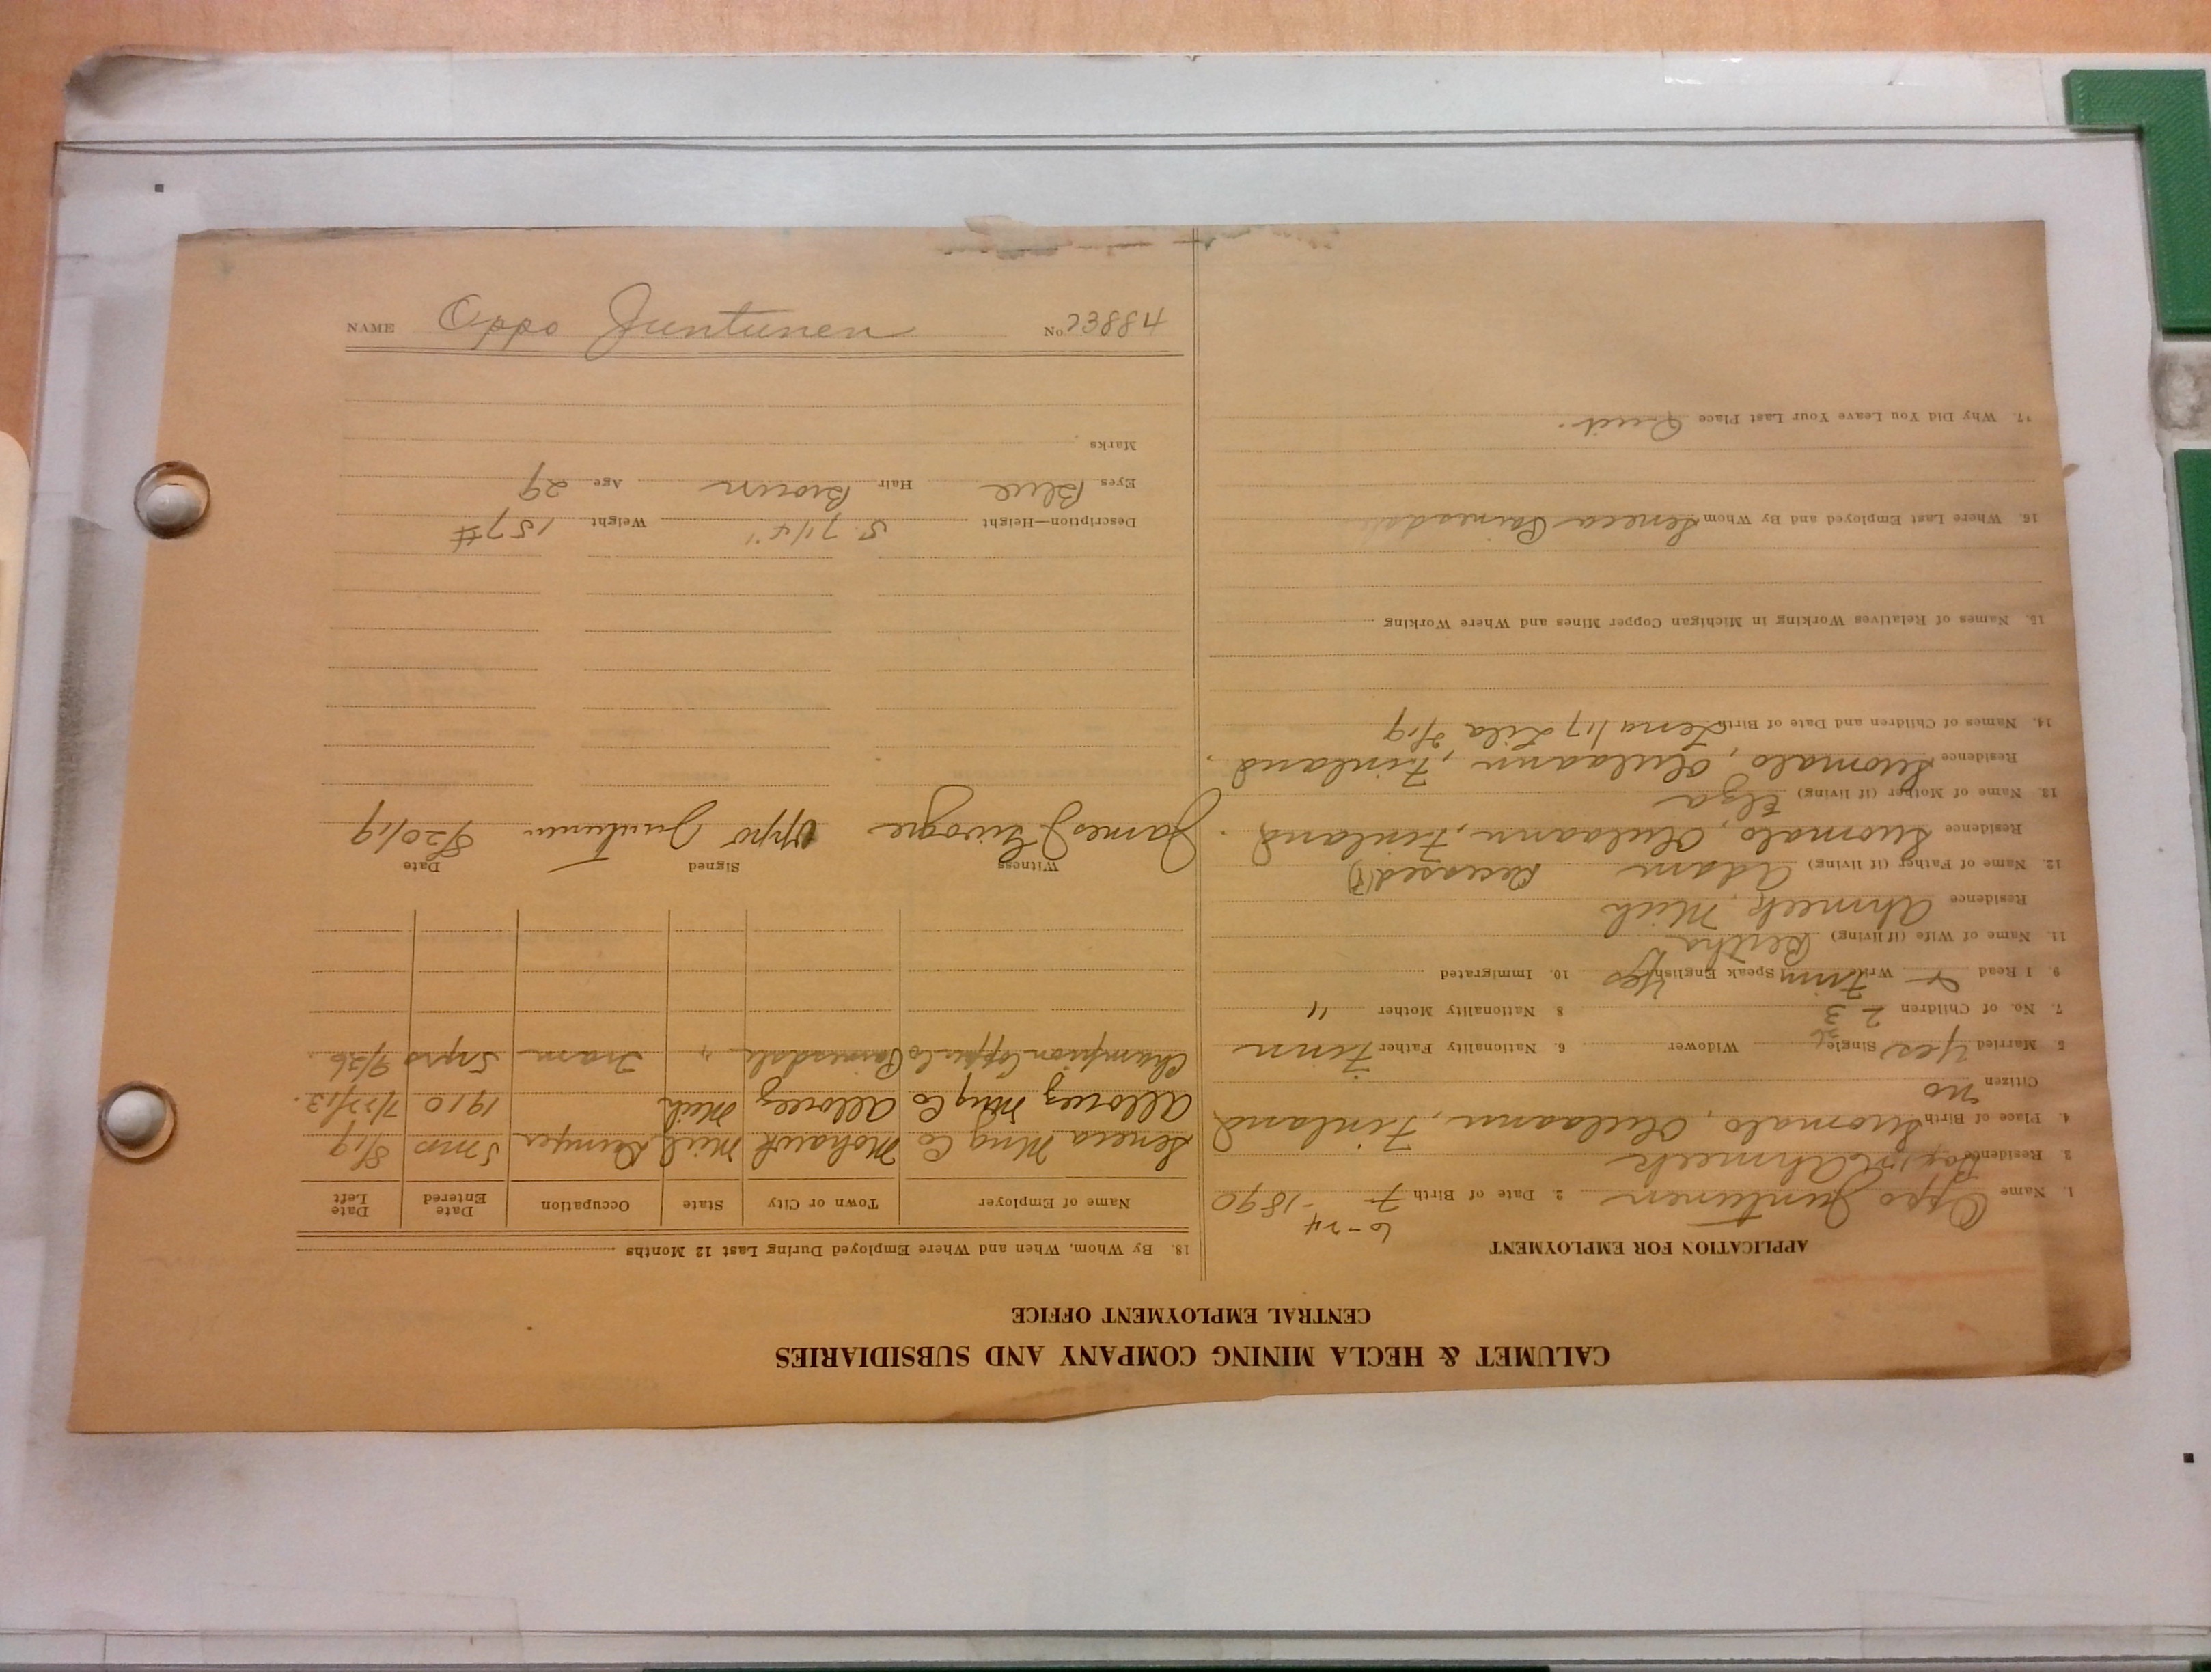 CALUMET & HECLA MINING COMPANY AND SUBSIDIARIES
CENTRAL EMPLOYMENT OFFICE
APPLICATION FOR EMPLOYMENT
6-24
1. Name Oppo Juntunen 2. Date of Birth 7 -1890
3. Residence Ahmeek
4. Place of Birth Suomalo, Oulaann, Finland
Citizen no
5. Married Yes Single Widower 6. Nationality Father Finn
7. No. of Children 2 3 8 Nationality Mother "
9. I Read Write Finn Speak English Yes 10. Immigrated
11. Name of Wife (if living) Bertha
Residence Ahmeek, Mich
12. Name of Father (if living) Adam Deceased (?)
Residence Suomalo, Oulaann, Finland.
13. Name of Mother (if living) Elza
Residence Suomalo, Oulaann, Finland.
14. Names of Children and Date of Birth Lena /17 Lila 2/19
15. Names of Relatives Working in Michigan Copper Mines and Where Working
16. Where Last Employed and By Whom Seneca Painesdale
17. Why Did You Leave Your Last Place Quit.
18. By Whom, When and Where Employed During Last 12 Months
Name of Employer Town or City State Occupation Date Entered Date Left
Seneca Mng Co Mohawk Mich 5 mos 8/19
Allouez Mng Co Allouez Mich 1910 7/22/13.
Champion Copper Co Painesdale " Tram 5 yrs 9/26.
Witness Signed Date
James Oppo Juntunen 8/20/19
Description—Height 5' 7 1/4" Weight 157#
Eyes Blue Hair Brown Age 29
Marks
NAME Oppo Juntunen No. 23884